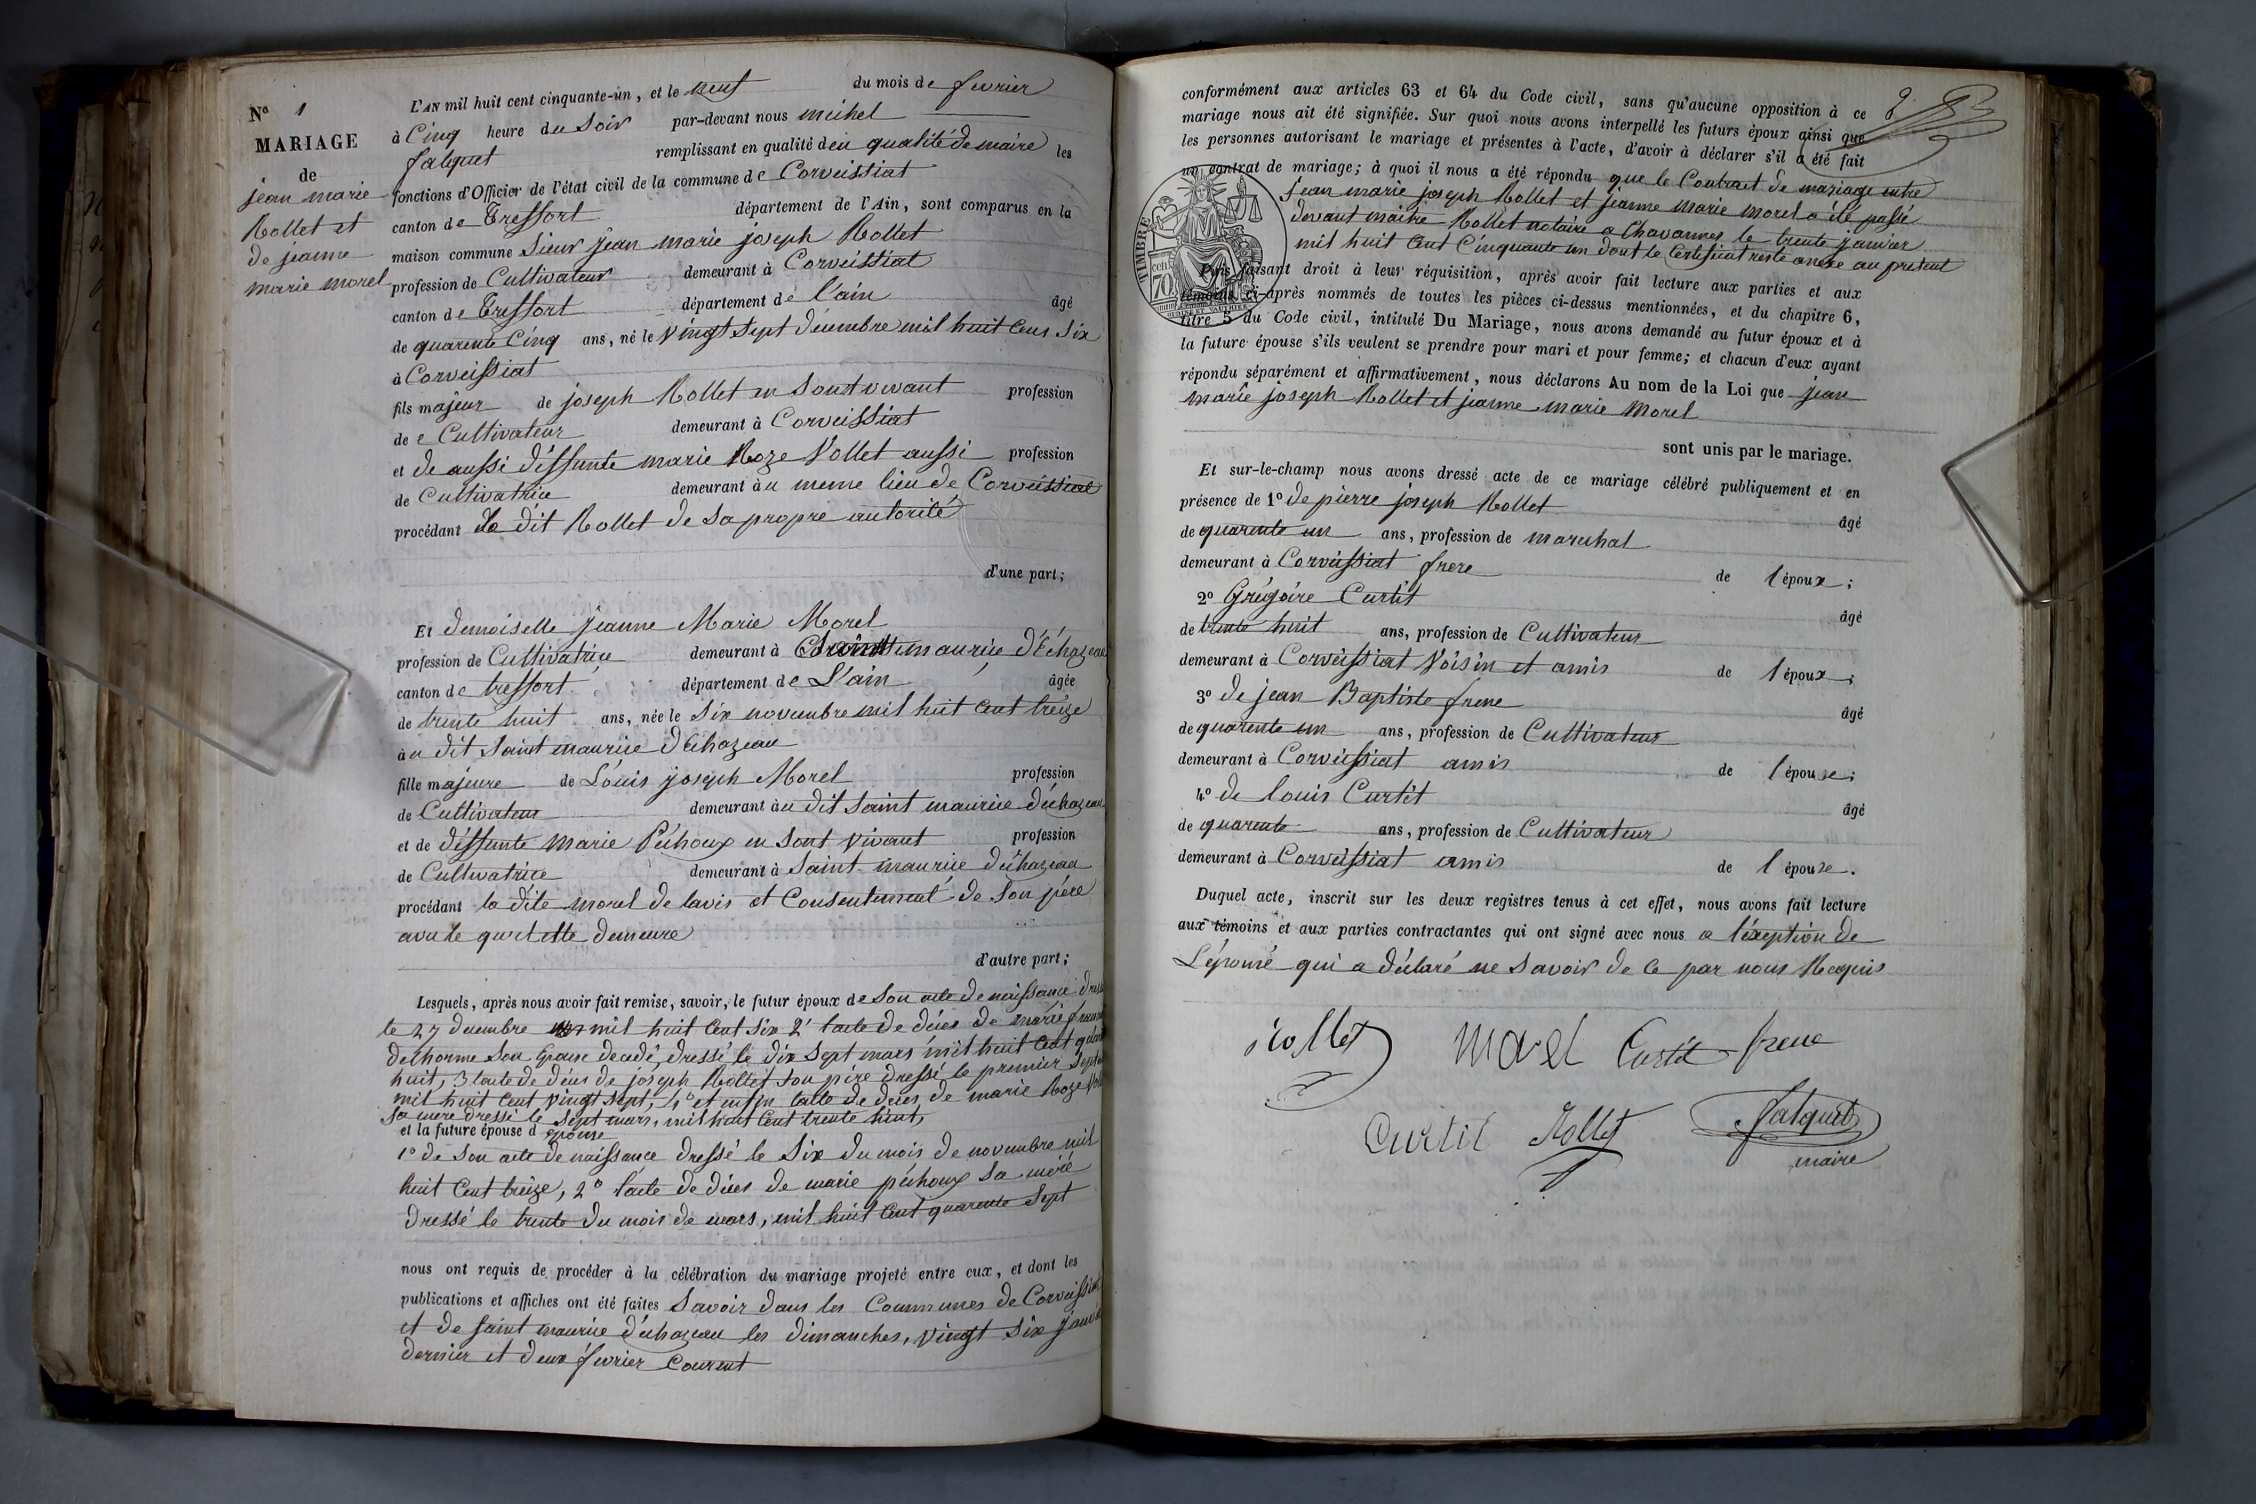 No 1
MARIAGE
de
jean marie
Rollet et
de jeanne
marie morel
L'AN mil huit cent cinquante-un, et le neuf du mois de fevrier
à Cinq heure du Soir par-devant nous michel
falquet remplissant en qualité de en qualité de maire les
fonctions d'Officier de l'état civil de la commune de Corveissiat
canton de Treffort département de l'Ain, sont comparus en la
maison commune Sieur jean marie joseph Rollet
profession de Cultivateur demeurant à Corveissiat
canton de Treffort département de l'ain âgé
de quarente Cinq ans, né le Vingt Sept decembre mil huit Cens Six
à Corveissiat
fils majeur de joseph Rollet en Sont vivant profession
de e Cultivateur demeurant à Corveissiat
et de aussi déffunte marie Roze Vollet aussi profession
de Cultivatrice demeurant àu meme lieu de Corveissiat
procédant Le dit Rollet de Sa propre autorité
d'une part;
Et demoiselle jeanne Marie Morel
profession de Cultivatrice demeurant à Saint maurice d'Échazeau
canton de treffort département de L'ain âgée
de trente huit ans, née le Six novembre mil huit Cent treize
àu dit Saint maurice d'Echazeau
fille majeure de Louis joseph Morel profession
de Cultivateur demeurant àu dit Saint maurice d'échazeau
et de déffunte Marie Péchoux en Sont vivant profession
de Cultivatrice demeurant à Saint maurice d'échazeau
procédant la dite morel de lavis et Consentement de Son pére
avu le quel elle demeure
d'autre part;
Lesquels, après nous avoir fait remise, savoir, le futur époux de Son acte de naissance dressé
le 27 decembre mil huit Cent Six 2° lacte de décès de marie
delhorme Son Epouse decedé, dressé le dix Sept mars mil huit Cent
huit, 3 lacte de décés de joseph Rollet Son pére dressé le premier
mil huit Cent Vingt Sept, 4° et enfin lacte de décès, de marie Roze
Sa mere dressé le Sept mars, mil huit Cent trente huit,
et la future épouse d épouse
1° de Son acte de naissance dressé le Six du mois de novembre mil
huit Cent treize, 2° lacte de décès de marie péchoux Sa meré
dressé le trente du mois de mars, mil huit Cent quarente Sept
nous ont requis de procéder à la célébration du mariage projeté entre eux, et dont les
publications et affiches ont été faites Savoir dans les Communes de Corveissiat
et de Saint maurice d'échazeau les dimanches, Vingt Six janvier
dernier et deux fevrier Courent
2
conformément aux articles 63 et 64 du Code civil, sans qu'aucune opposition à ce
mariage nous ait été signifiée. Sur quoi nous avons interpellé les futurs époux ainsi que
les personnes autorisant le mariage et présentes à l'acte, d'avoir à déclarer s'il a été fait
un contrat de mariage; à quoi il nous a été répondu que le Contract de mariage entre
jean marie joseph Rollet et jeanne marie morel a été passé
devant maitre Rollet notaire a Chavannes le trente janvier
mil huit Cent Cinquante un dont le Certificat reste anexe au présent
TIMBRE
cent.
70
Puis faisant droit à leur réquisition, après avoir fait lecture aux parties et aux
témoins ci-après nommés de toutes les pièces ci-dessus mentionnées, et du chapitre 6,
titre 5 du Code civil, intitulé Du Mariage, nous avons demandé au futur époux et à
la future épouse s'ils veulent se prendre pour mari et pour femme; et chacun d'eux ayant
répondu séparément et affirmativement, nous déclarons Au nom de la Loi que jean
marie joseph Rollet et jeanne marie Morel
sont unis par le mariage.
Et sur-le-champ nous avons dressé acte de ce mariage célébré publiquement et en
présence de 1° de pierre joseph Rollet âgé
de quarente un ans, profession de marechal
demeurant à Corveissiat frere de l époux;
2° Grégoire Curtit âgé
de trente huit ans, profession de Cultivateur
demeurant à Corveissiat Voisin et amis de l époux;
3° de jean Baptiste frene âgé
de quarente un ans, profession de Cultivateur
demeurant à Corveissiat amis de l épouse;
4° de louis Curtit âgé
de quarente ans, profession de Cultivateur
demeurant à Corveissiat amis de l épouse.
Duquel acte, inscrit sur les deux registres tenus à cet effet, nous avons fait lecture
aux témoins et aux parties contractantes qui ont signé avec nous a léxeption de
L'épouse qui a déclaré ne Savoir de Ce par nous Requis
Rollet Morel Curtit frene
Curtit Rollet falquet
maire